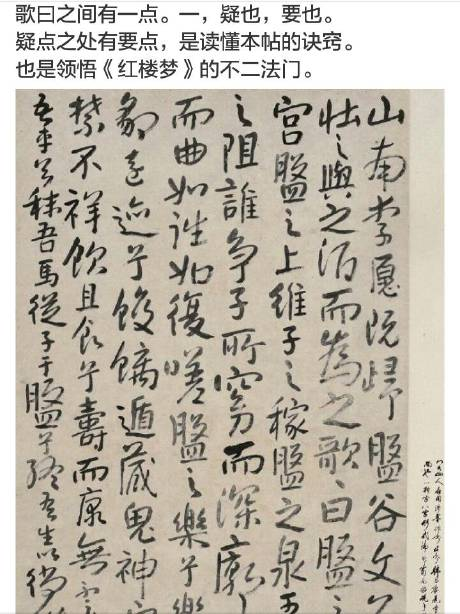 歌曰之间有一点。一，疑也，要也。
疑点之处有要点，是读懂本帖的诀窍。
也是领悟《红楼梦》的不二法门。
山南李愿既歸盤谷文公
壮之與之酒而為之歌曰盤之
宫盤之上維子之稼盤之泉
之阻誰争子所窮而深廓
而曲如往如復嗟盤之樂兮
豹遠迹兮蛟螭遁藏鬼神
禁不祥飲且食兮壽而康無不
吾車兮秣吾馬從子于盤兮終吾生以徜